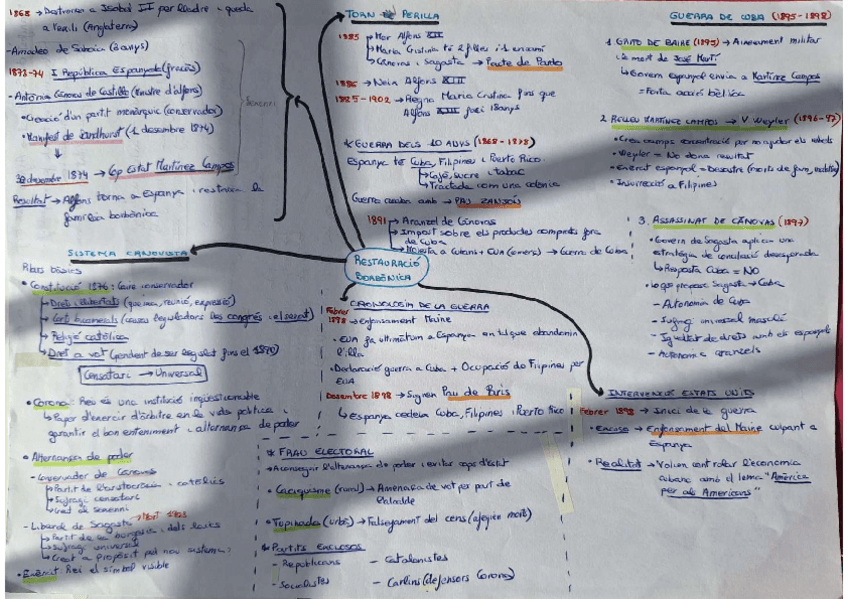 1868 → Destronen a Isabel II per lladre i queda
a l'exili (Anglaterra)
- Amadeo de Saboia (3 anys)
1873-74 I República Espanyola (fracàs)
- Antonio Cánovas del Castillo (ministre d'Alfons)
Creació d'un partit monàrquic (conservador)
Manifest de Sandhurst (1 desembre 1874)
Sexenni
30 desembre 1874 → Cop Estat Martínez Campos
Resultat → Alfons torna a Espanya i restaura la
família borbònica
SISTEMA CANOVISTA
Pilars bàsics
• Constitució 1876: Caire conservador
→ Drets i llibertats (premsa, reunió, expressió)
→ Corts bicamerals (causes legisladors les congrés i el senat)
→ Religió catòlica
→ Dret a vot (pendent de ser legislat fins el 1890)
Censatari → Universal
• Corona: Rei és una institució inqüestionable
↳ Paper d'exercir d'àrbitre en la vida política i
garantir el bon enteniment i alternança de poder
• Alternança de poder
- Conservador de Cánovas
↳ Partit de l'aristocràcia i catòlics
↳ Sufragi censatari
- Liberal de Sagasta → Mort 1903
↳ Partit de la burgesia i dels laics
↳ Sufragi universal
↳ Creat a propòsit pel nou sistema
• Exèrcit: Rei el símbol visible
TORN PERILLA
1885 → Mor Alfons XII
→ Maria Cristina té 2 filles i 1 encamí
→ Cánovas i Sagasta → Pacte de Pardo
1886 → Neix Alfons XIII
1885-1902 → Regna Maria Cristina fins que
Alfons XIII faci 18 anys
* GUERRA DELS 10 ANYS (1868-1878)
Espanya té Cuba, Filipines i Puerto Rico
↳ Cafè, sucre i tabac
↳ Tractada com una colònia
Guerra acaba amb → PAU ZANJÓN
1891 → Aranzel de Cánovas
→ Impost sobre els productes comprats fora
de Cuba
→ Molesta a cubans + EUA (comerç) → Guerra de Cuba
RESTAURACIÓ
BORBÒNICA
CRONOLOGIA DE LA GUERRA
Febrer
1898 → Enfonsament Maine
• EUA fa ultimàtum a Espanya en el que abandonin
l'illa
• Declaració guerra a Cuba + Ocupació de Filipines per
EUA
Desembre 1898 → Signen Pau de París
↳ Espanya cedeix Cuba, Filipines i Puerto Rico
* FRAU ELECTORAL
→ Aconseguir l'alternança de poder i evitar cops d'estat
• Caciquisme (rural) → Amenaça de vot per part de
l'alcalde
• Tupinada (urbs) → Falsejament del cens (afegien morts)
* PARTITS EXCLOSOS
- Republicans
- Catalanistes
- Socialistes
- Carlins (defensors Corona)
GUERRA DE CUBA (1895-1898)
1. GRITO DE BAIRE (1895) → Aixecament militar
i la mort de José Martí
↳ Govern espanyol envia a Martínez Campos
= Forta acció bèl·lica
2. RELLEU MARTÍNEZ CAMPOS → V. Weyler (1896-97)
• Crea camps concentració per no ajudar els rebels
• Weyler = No dona resultat
• Exèrcit espanyol = Desastre (morts de fam, malalties)
• Insurrecció a Filipines
3. ASSASSINAT DE CÁNOVAS (1897)
• Govern de Sagasta aplica una
estratègia de conciliació desesperada
↳ Resposta Cuba = NO
• Logos proposa Sagasta → Cuba
- Autonomia de Cuba
- Sufragi universal masculí
- Igualtat de drets amb els espanyols
- Autonomia aranzels
INTERVENCIÓ ESTATS UNITS
Febrer 1898 → Inici de la guerra
• Excusa → Enfonsament del Maine culpant a
Espanya
• Realitat → Volien controlar l'economia
cubana amb el lema "Amèrica
per als Americans"